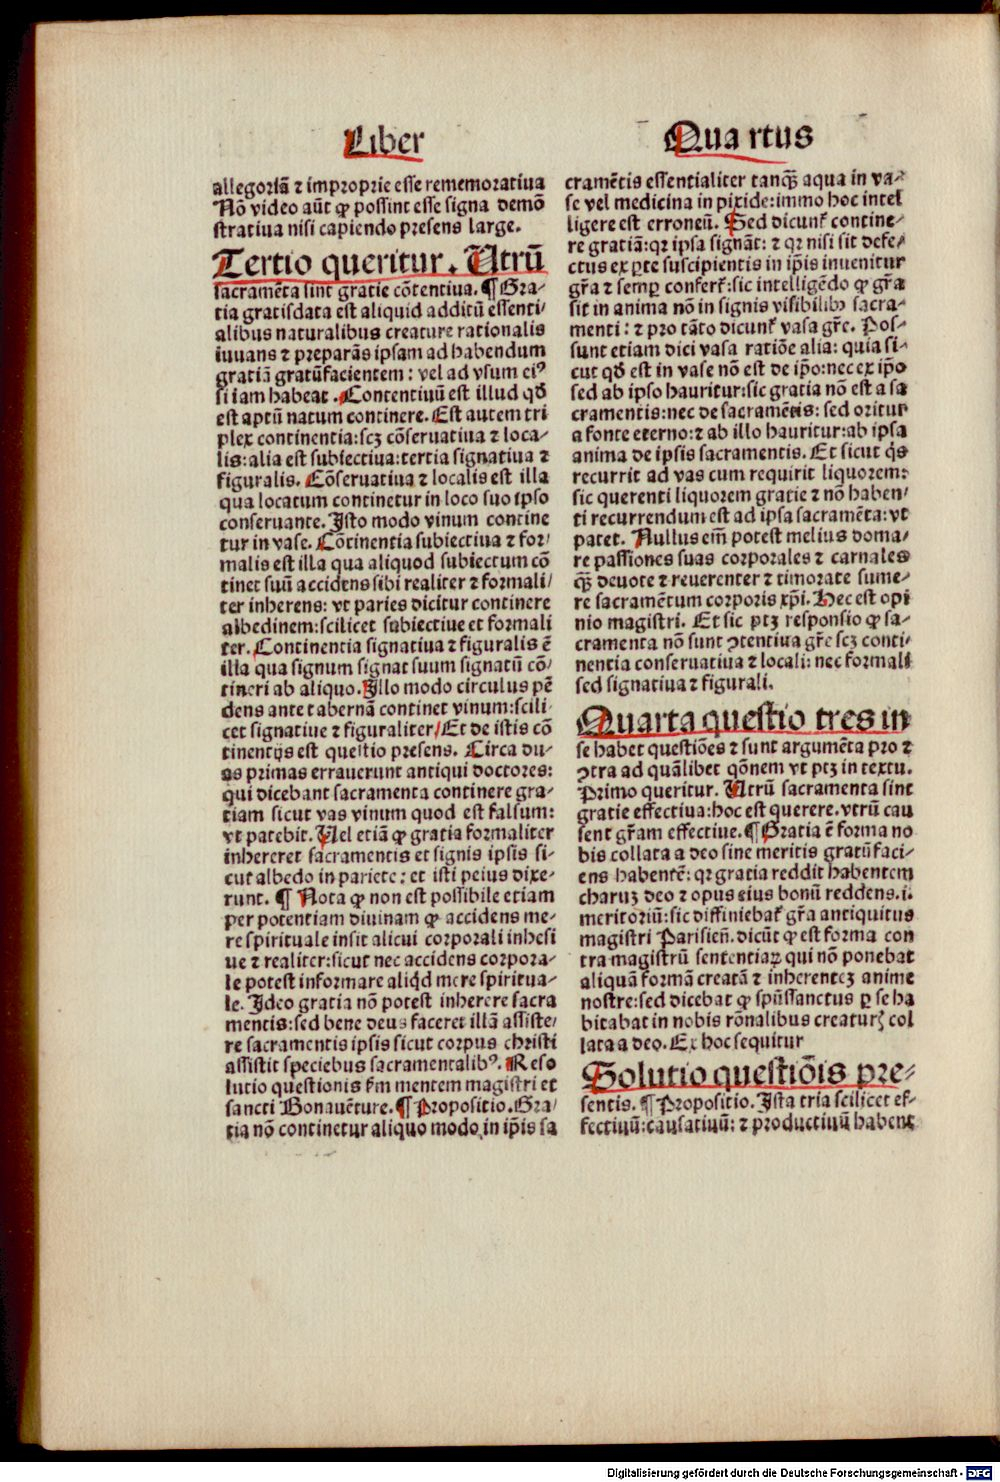 Liber
Quartus
allegoriā ⁊ improprie esse rememoratiua
Nō video aūt ꝙ possint esse signa demō
stratiua nisi capiendo presens large.
Tertio queritur. Utrū
sacramēta sint gratie cōtentiua. ¶ Gra-
tia gratisdata est aliquid additū essenti-
alibus naturalibus creature rationalis
iuuans ⁊ preparās ipsam ad habendum
gratiā gratūfacientem: vel ad vsum eiꝰ
si iam habeat. Contentiuū est illud qđ
est aptū natum continere. Est autem tri
plex continentia: scꝫ cōseruatiua ⁊ loca-
lis: alia est subiectiua: tertia signatiua ⁊
figuralis. Cōseruatiua ⁊ localis est illa
qua locatum continetur in loco suo ipso
conseruante. Isto modo vinum contine
tur in vase. Cōtinentia subiectiua ⁊ for-
malis est illa qua aliquod subiectum cō
tinet suū accidens sibi realiter ⁊ formali-
ter inherens: vt paries dicitur continere
albedinem: scilicet subiectiue et formali
ter. Continentia signatiua ⁊ figuralis ē
illa qua signum signat suum signatū cō-
tineri ab aliquo. Illo modo circulus pē
dens ante tabernā continet vinum: scili-
cet signatiue ⁊ figuraliter/ Et de istis cō
tinentijs est questio presens. Circa du-
as primas errauerunt antiqui doctores:
qui dicebant sacramenta continere gra-
tiam sicut vas vinum quod est falsum:
vt patebit. Uel etiā ꝙ gratia formaliter
inhereret sacramentis et signis ipsis si-
cut albedo in pariete: et isti peius dixe-
runt. ¶ Nota ꝙ non est possibile etiam
per potentiam diuinam ꝙ accidens me-
re spirituale insit alicui corporali inhesi
ue ⁊ realiter: sicut nec accidens corpora-
le potest informare aliqd mere spiritua-
le. Ideo gratia nō potest inherere sacra
mentis: sed bene deus faceret illā assiste-
re sacramentis ipsis sicut corpus christi
assistit speciebus sacramentalibꝰ. Reso
lutio questionis ẜm mentem magistri et
sancti Bonauēture. ¶ Propositio. Gra-
tia nō continetur aliquo modo in ip̄is sa
cramētis essentialiter tanqꝫ̄ aqua in va-
se vel medicina in pixide: immo hoc intel
ligere est erroneū. Sed dicunt̉ contine-
re gratiā: qꝛ ipsa signāt: ⁊ qꝛ nisi sit defe-
ctus ex ꝑte suscipientis in ip̄is inuenitur
gr̄a ⁊ semꝑ confert̉: sic intelligēdo ꝙ gr̄a
sit in anima nō in signis visibilibꝰ sacra-
menti: ⁊ pro tāto dicunt̉ vasa gr̄e. Pos-
sunt etiam dici vasa ratiōe alia: quia si-
cut qđ est in vase nō est de ip̄o: nec ex ip̄o
sed ab ipso hauritur: sic gratia nō est a sa
cramentis: nec de sacramētis: sed oritur
a fonte eterno: ⁊ ab illo hauritur: ab ipsa
anima de ipsis sacramentis. Et sicut qͥs
recurrit ad vas cum requirit liquorem:
sic querenti liquorem gratie ⁊ nō haben-
ti recurrendum est ad ipsa sacramēta: vt
patet. Nullus em̄ potest melius doma-
re passiones suas corporales ⁊ carnales
qꝫ̄ deuote ⁊ reuerenter ⁊ timorate sume-
re sacramētum corporis xp̄i. Hec est opi
nio magistri. Et sic ptꝫ responsio ꝙ sa-
cramenta nō sunt ꝯtentiua gr̄e scꝫ conti-
nentia conseruatiua ⁊ locali: nec formali
sed signatiua ⁊ figurali.
Quarta questio tres in
se habet questiōes ⁊ sunt argumēta pro ⁊
ꝯtra ad quālibet qōnem vt ptꝫ in textu.
Primo queritur. Utrū sacramenta sint
gratie effectiua: hoc est querere. vtrū cau
sent gr̄am effectiue. ¶ Gratia ē forma no
bis collata a deo sine meritis gratūfaci-
ens habentē: qꝛ gratia reddit habentem
charuꝫ deo ⁊ opus eius bonū reddens. i.
meritoriū: sic diffiniebat̉ gr̄a antiquitus
magistri Parisień. dicūt ꝙ est forma con
tra magistrū sententiaꝝ qui nō ponebat
aliquā formā creatā ⁊ inherenteꝫ anime
nostre: sed dicebat ꝙ spūssanctus ꝑ se ha
bitabat in nobis rōnalibus creaturꝭ col
lata a deo. Ex hoc sequitur
Solutio questiōis pre-
sentis. ¶ Propositio. Ista tria scilicet ef-
fectiuū: causatiuū: ⁊ productiuū habent
Digitalisierung gefördert durch die Deutsche Forschungsgemeinschaft - DFG